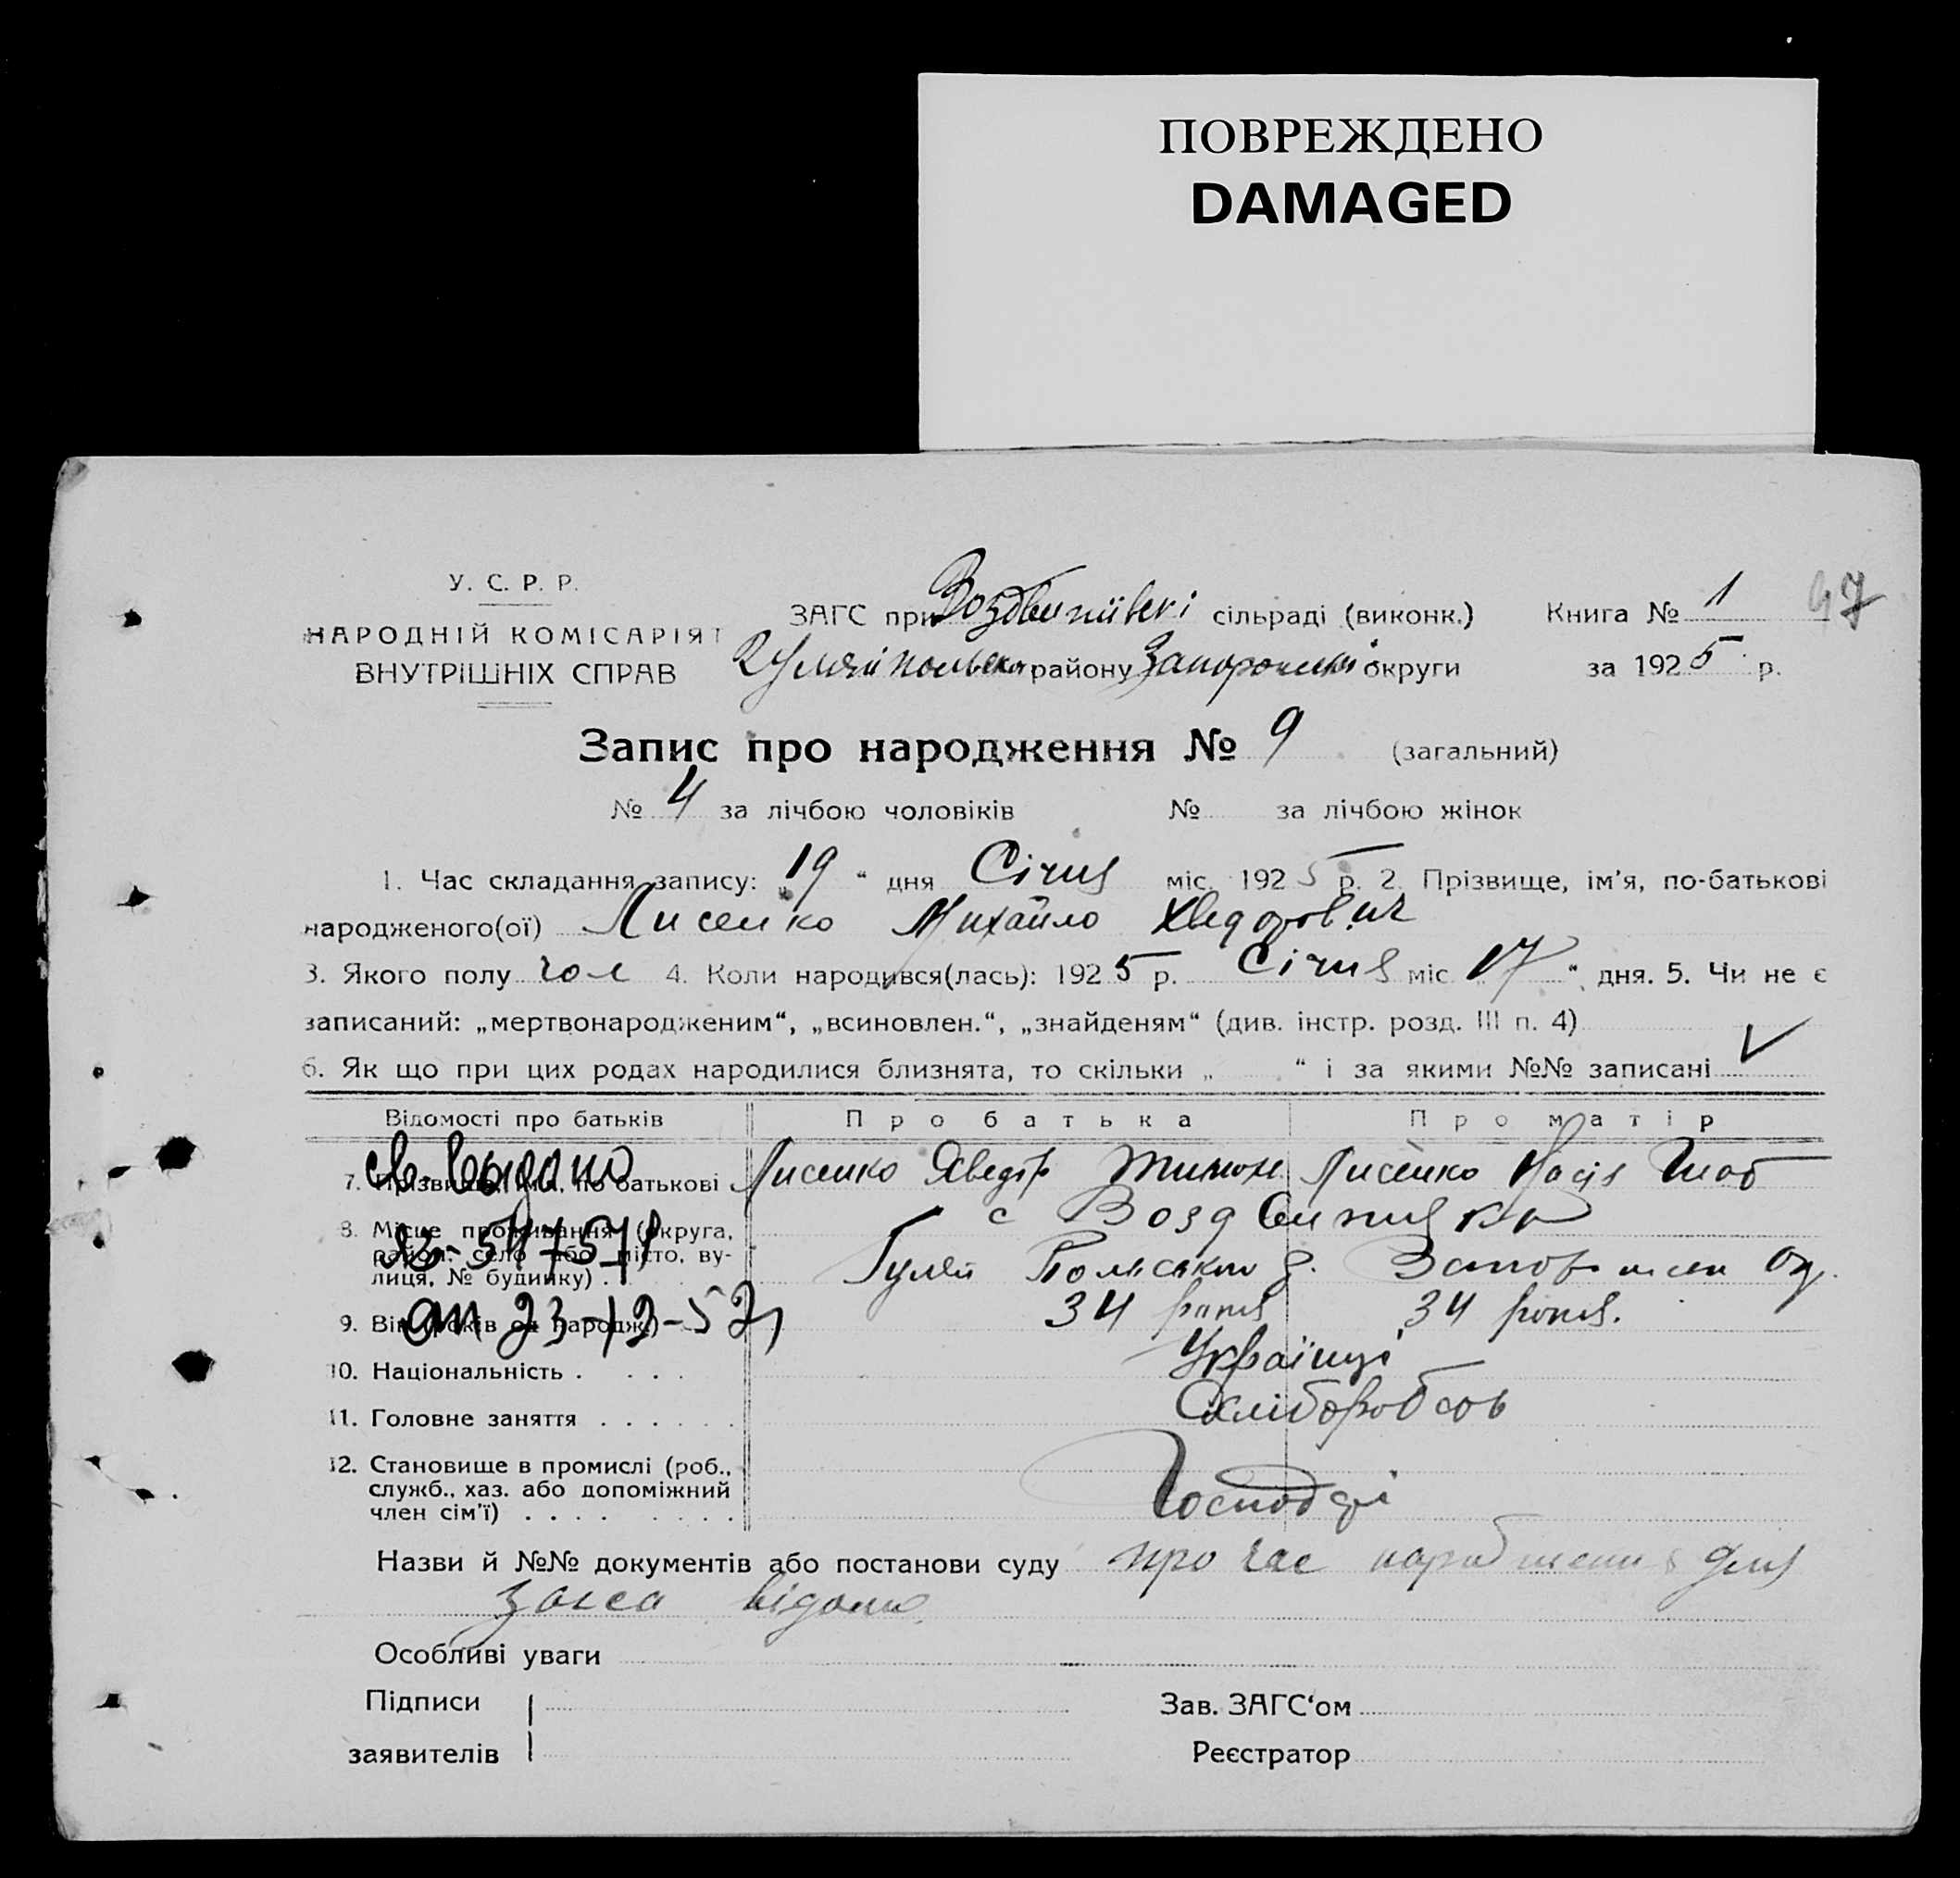 ПОВРЕЖДЕНО
DAMAGED
У. С. Р. Р.
НАРОДНІЙ КОМІСАРІЯТ
ВНУТРІШНІХ СПРАВ
ЗАГС при Воздвижівскі сільраді (виконк.) Книга № 1 47
району округи за 1925 р.
Запис про народження № 9 (загальний)
№ 4 за лічбою чоловіків № за лічбою жінок
1. Час складання запису: „19“ дня Січня міс. 1925 р. 2. Прізвище, ім'я, по-батькові
народженого(ої) Лисенко Михайло Хведорович
3. Якого полу чол 4. Коли народився(лась): 1925 р. Січня міс. 17 “ дня. 5. Чи не є
записаний: „мертвонародженим“, „всиновлен.“, „знайденям“ (див. інстр. розд. III п. 4)
6. Як що при цих родах народилися близнята, то скільки „ “ і за якими №№ записані
Відомості про батьків Про батька Про матір
7. Прізвище, ім'я, по батькові Лисенко Хведір Тимох Лисенко
св. выдано
8. Місце проживання (округа, с Воздвиживка
район, село або місто, ву-
лиця, № будинку) . Гуляй Польськ
9. Вік (років од народж.) 34 роки 34 роки.
от 23-12-52
10. Національність . . . . Українці
11. Головне заняття . . . . . . Хлібороб
12. Становище в промислі (роб.,
служб., хаз. або допоміжний
член сім'ї) . . . . . . . . Господарі
Назви й №№ документів або постанови суду про час народження для
загса відомо
Особливі уваги
Підписи Зав. ЗАГС‘ом
заявителів Реєстратор